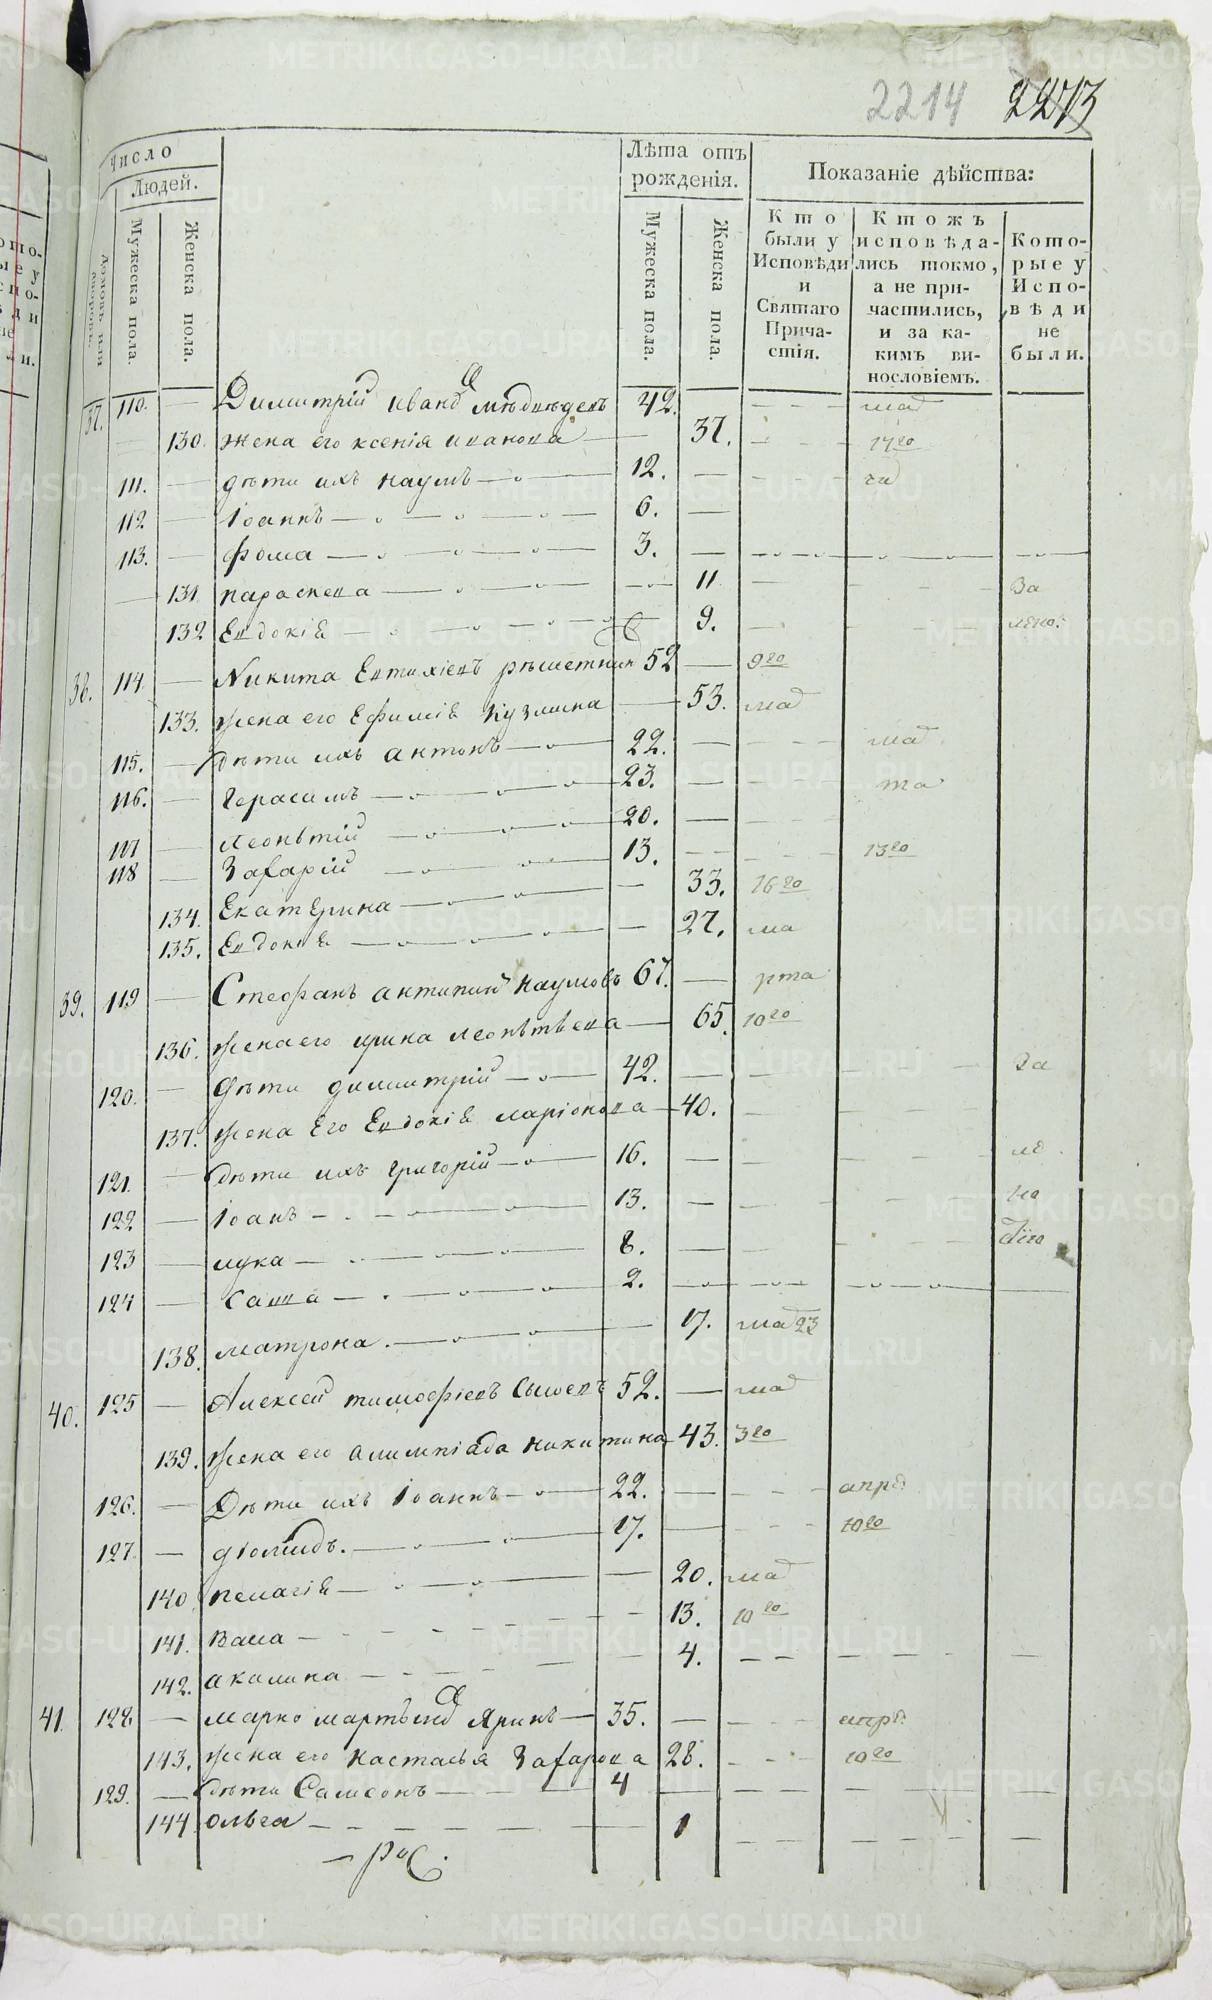 2214 2273
Число
Людей.
Домовъ или дворовъ.
Мужеска пола.
Женска пола.
Лѣта отъ рожденія.
Мужеска пола.
Женска пола.
Показаніе дѣйства:
Кто были у Исповѣди и Святаго Причастія.
Ктожъ исповѣдались токмо, а не причастились, и за какимъ винословіемъ.
Которые у Исповѣди не были.
37. 110. — Димитрій иванов мѣдведевъ 42. — — мад
130. жена его ксенія иванова — 37. — — 17го
111. — дѣти ихъ наумъ — 12. — —
112 — Іоаннъ — 6. —
113. — фома — 3. —
131. параскева — 11 — За
132 Евдокіѣ — 9. —
38. 114. — Никита Евтихіевъ рѣшетник 52 — 9го
133. жена его Ефиміѣ кузмина — 53. мад
115. — дѣти ихъ антонъ — 22. — мад
116. — Герасимъ — 23. — та
117 — леонтій — 20. —
118 — Захарій — 13. — 13го
134. Екатерина — 33. 16го
135. Евдокіѣ — 27. ма
39. 119 — Стефанъ антипин наумовъ 67. — рта
136. жена его ирина леонтьева — 65. 10го
120. — дѣти димитрій — 42. — За
137. жена Его Евдокіѣ ларіонова — 40. —
121. — дѣти ихъ григорій — 16. —
122 — Іоанъ — 13. —
123 — лука — 8. —
124 — Савва — 2. —
138. матрона. — 17. мад 23
40. 125 — Алексей тимофіевъ Сысоевъ 52. — мад
139. жена его алимпіада никитина 43. 3го
126. — Дѣти ихъ Іоаннъ — 22. — апрѣ
127. — діомидъ. — 17. — 10го
140 пелагіѣ — 20. мад
141. Васа — 13. 10го
142. акилина — 4. —
41. 128 — марко мартьенов Яринъ — 35. — апрѣ
143. жена его настасья Захарова 28. — 10го
129. — дѣти Самсонъ — 4 —
144 ольга — 1 —